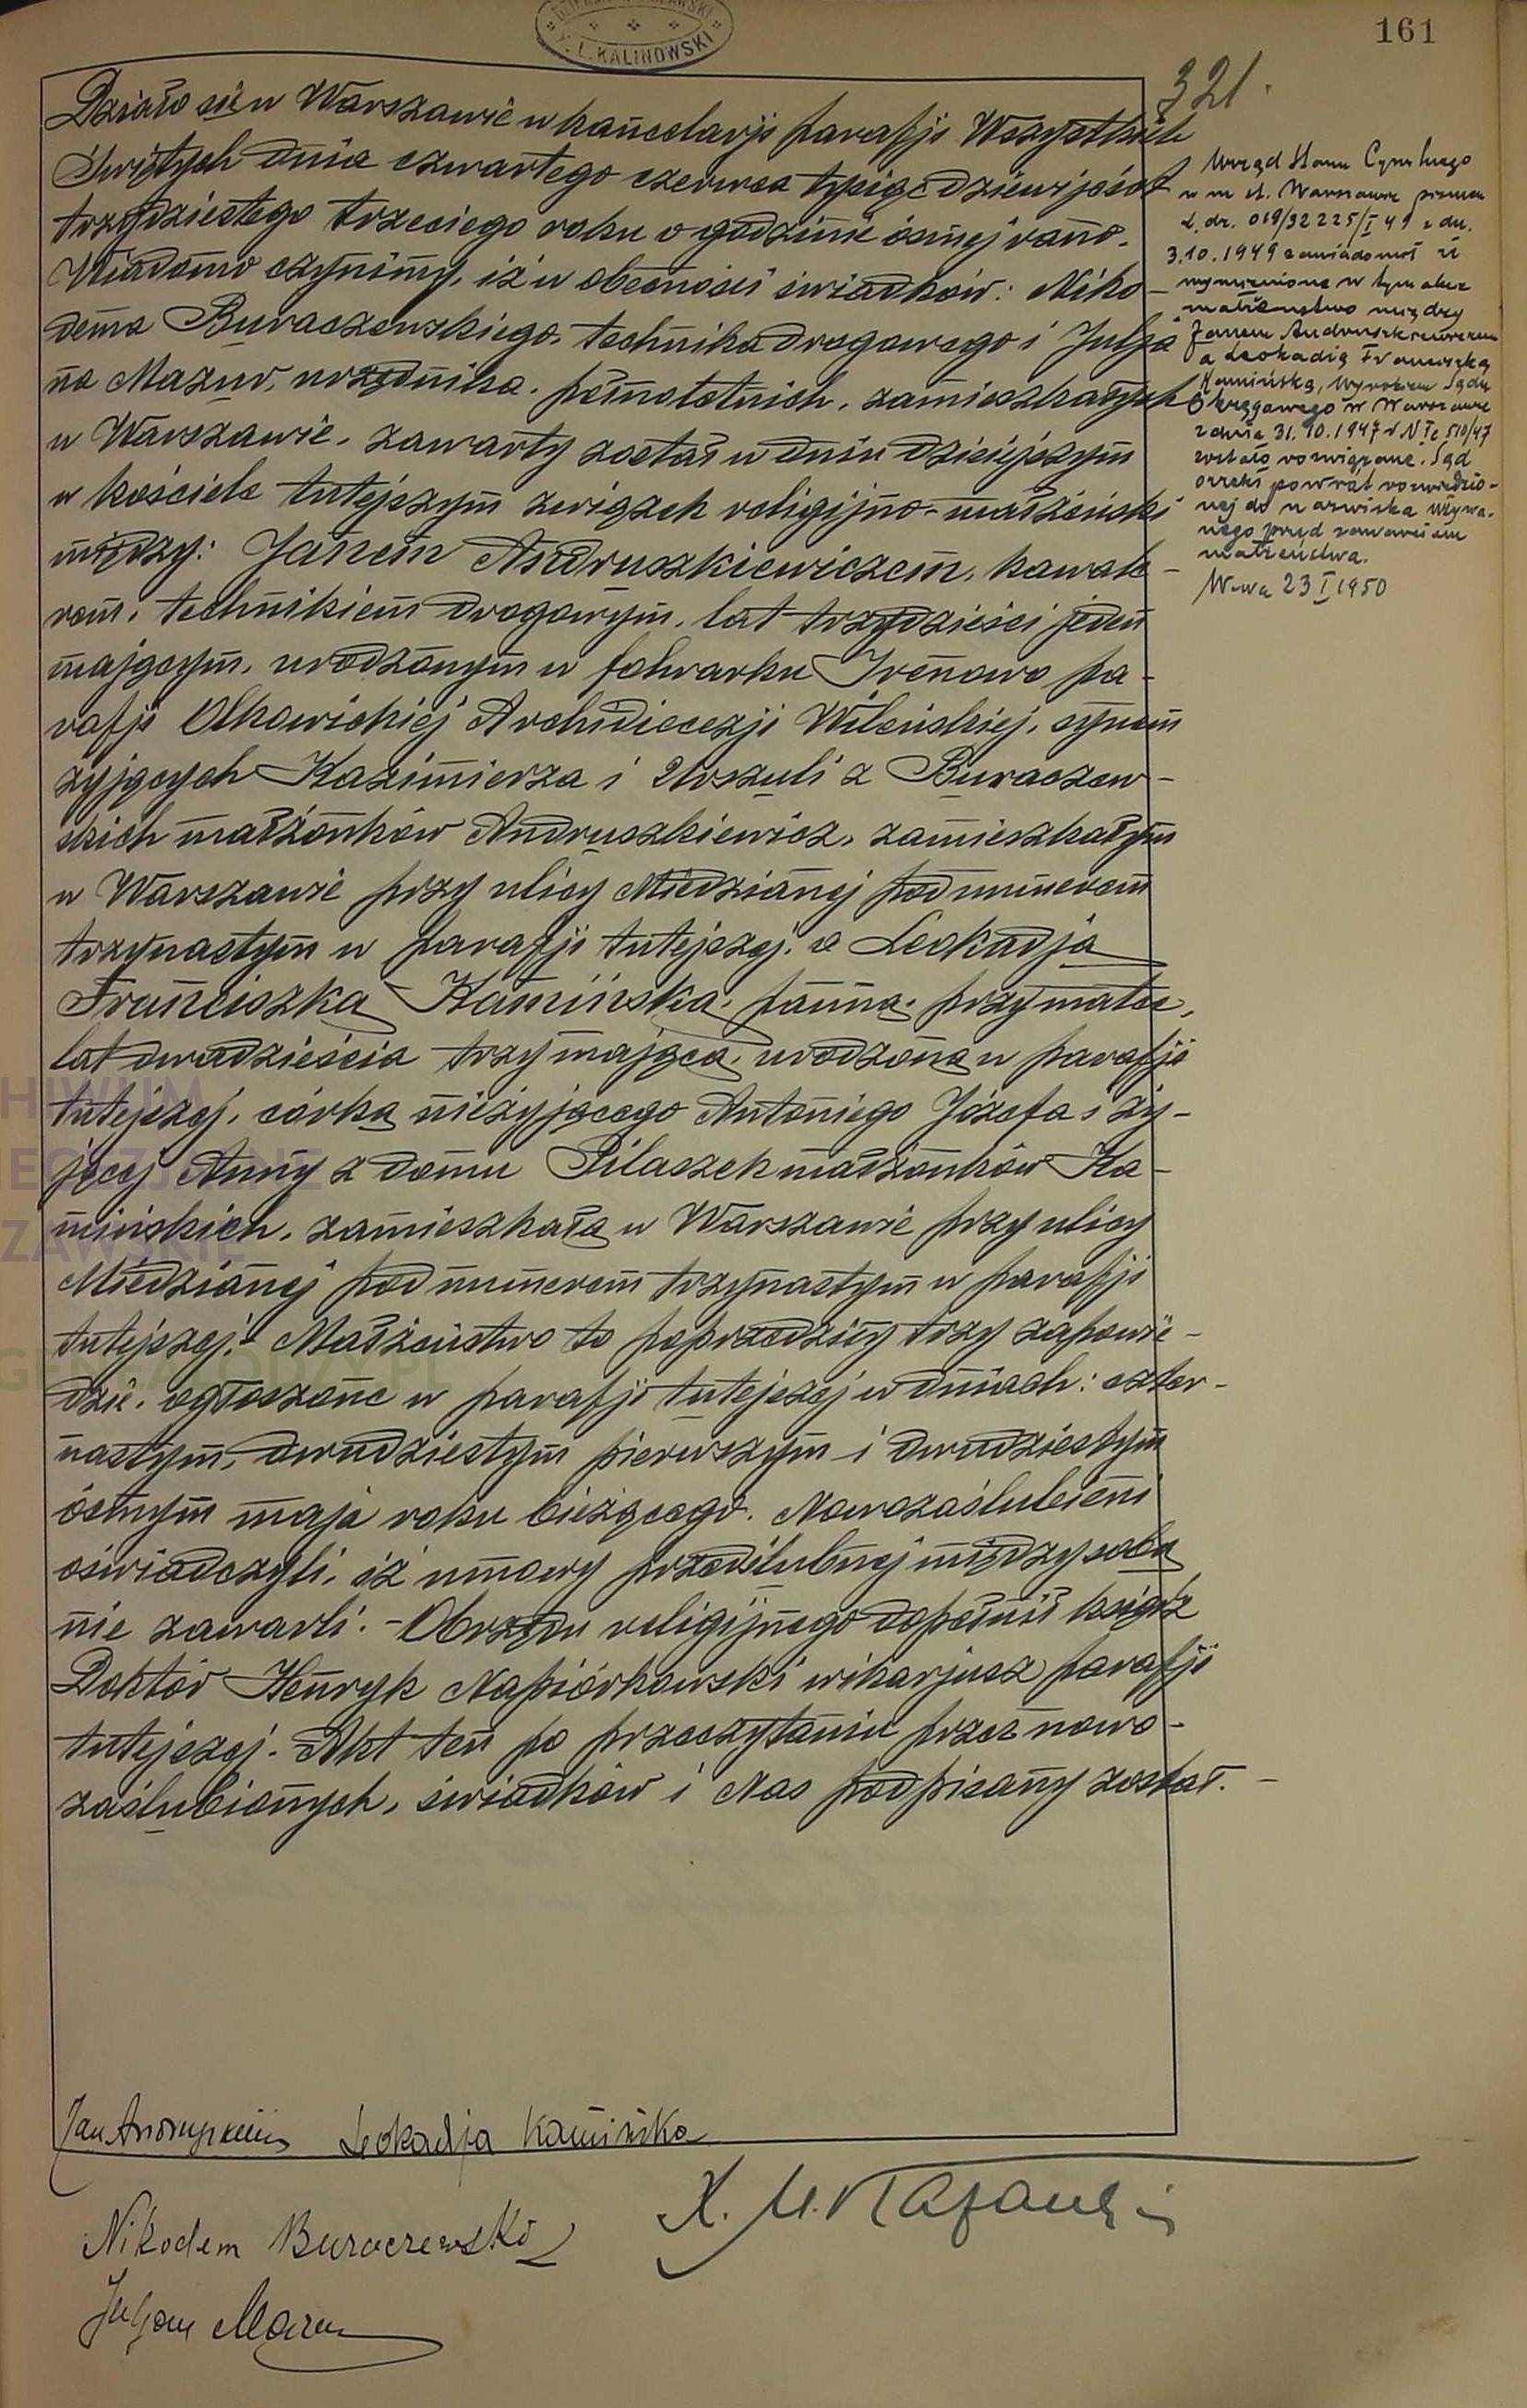 161
DZIEKAN WARSZAWSKI
L. KALINOWSKI
321.
Działo się w Warszawie w kancelarji parafji Wszystkich
Świętych dnia czwartego czerwca tysiąc dziewięćset
trzydziestego trzeciego roku o godzinie ósmej rano.
Wiadomo czynimy, iż w obecności świadków: Niko-
dema Buraczewskiego, technika drogowego i Julja
na Mazur, urzędnika, pełnoletnich, zamieszkałych
w Warszawie, zawarty został w dniu dzisiejszym
w kościele tutejszym związek religijno-małżeński
między: Janem Andruszkiewiczem, kawale-
rem, technikiem drogowym, lat trzydzieści jeden
mającym, urodzonym w folwarku Irenowo pa-
rafji Olkowickiej Archidiecezji Wileńskiej, synem
żyjących Kazimierza i Urszuli z Buraczew-
skich małżonków Andruszkiewicz, zamieszkałym
w Warszawie przy ulicy Miedzianej pod numerem
trzynastym w parafji tutejszej, a Leokadją
Franciszką Kamińską, panną, przy matce,
lat dwadzieścia trzy mającą, urodzoną w parafji
tutejszej, córką nieżyjącego Antoniego Józefa i ży-
jącej Anny z domu Pilaszek małżonków Ka-
mińskich, zamieszkałą w Warszawie przy ulicy
Miedzianej pod numerem trzynastym w parafji
tutejszej. Małżeństwo to poprzedziły trzy zapowie-
dzie, ogłoszone w parafji tutejszej w dniach: czter-
nastym, dwudziestym pierwszym i dwudziestym
ósmym maja roku bieżącego. Nowozaślubieni
oświadczyli, iż umowy przedślubnej między sobą
nie zawarli. - Obrzędu religijnego dopełnił ksiądz
Doktór Henryk Napiórkowski wikarjusz parafji
tutejszej. Akt ten po przeczytaniu przez nowo-
zaślubionych, świadków i Nas podpisany został. -
Urząd Stanu Cywilnego
w m st. Warszawie pismem
L. dz. 019/32225/I 49 z dn.
3.10.1949 zawiadomił iż
wymienione w tym akcie
małżeństwo między
Janem Andruszkiewiczem
a Leokadią Franciszką
Kamińską, wyrokiem Sądu
Okręgowego w Warszawie
z dnia 31.10.1947 r N I C 510/47
zostało rozwiązane. Sąd
orzekł powrót rozwiedzio-
nej do nazwiska używa-
nego przed zawarciem
małżeństwa.
W-wa 23 I 1950
Jan Andruszkiewicz Leokadja Kamińska
Nikodem Buraczewski
Juljan Mazur